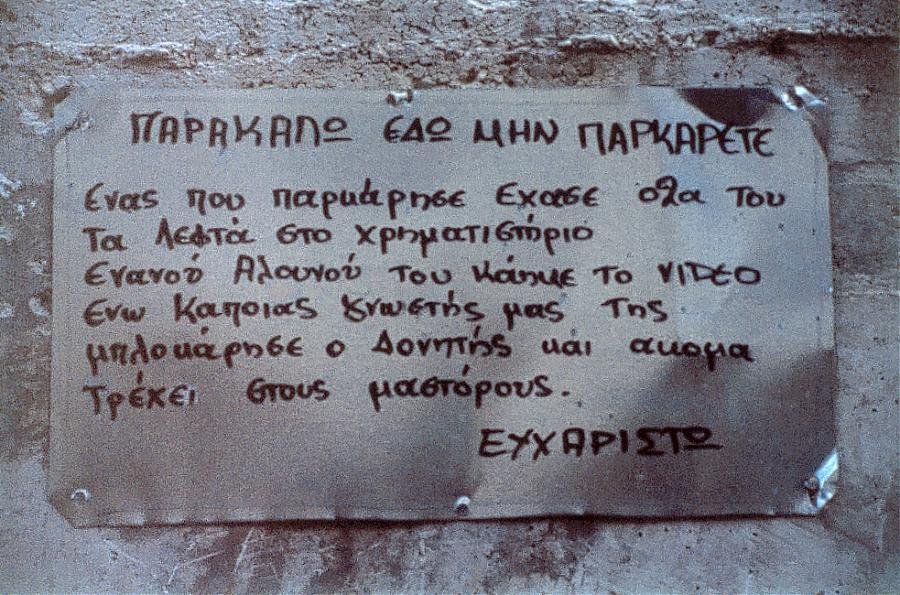 ΠΑΡΑΚΑΛΩ ΕΔΩ ΜΗΝ ΠΑΡΚΑΡΕΤΕ
Ενας που παρκάρησε Εχασε ολα Του
Τα Λεφτά στο χρηματιστήριο
Ενανού Αλουνού Του Κάηκε Το VIDEO
Ενω Καποιας γνωστής μας Της
μπλοκάρησε ο Δονητής και ακομα
Τρέχει στους μαστόρους.
ΕΥΧΑΡΙΣΤΩ